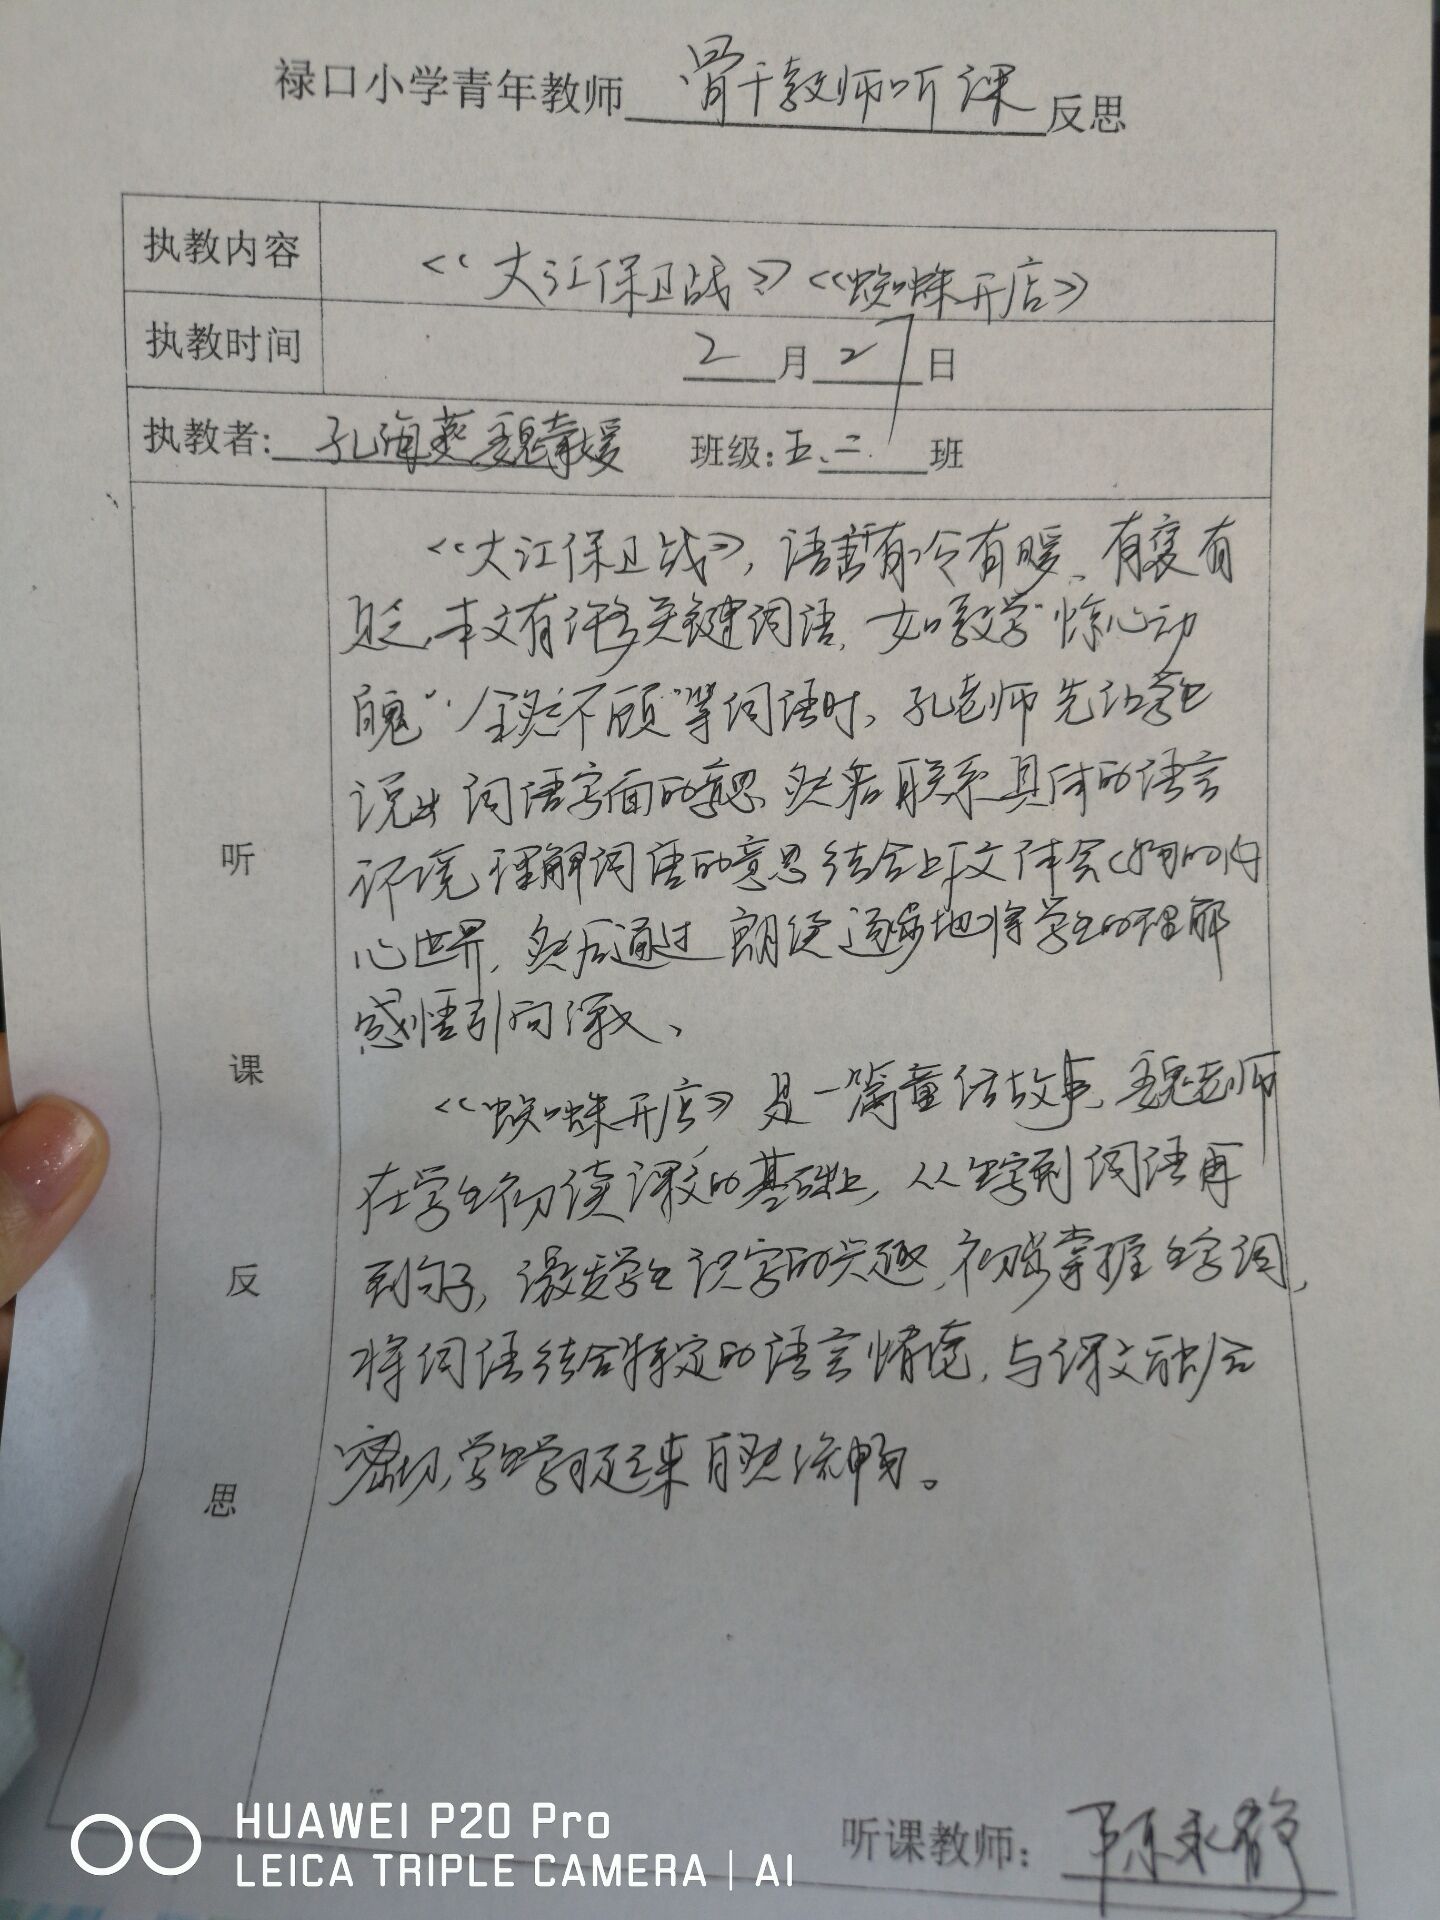 禄口小学青年教师 骨干教师听课 反思
执教内容 《大江保卫战》《蜘蛛开店》
执教时间 2月27日
执教者：孔海燕 魏 媛 班级：五.二.班
听课反思
《大江保卫战》，语言有冷有暖、有褒有
贬，本文有许多关键词语，如教学“惊心动
魄”“全然不顾”等词语时，孔老师先让学生
说出词语字面的意思，然后联系具体的语言
环境理解词语的意思结合上下文体会人物的内
心世界，然后通过朗读逐步地将学生的理解
感悟引向深入、
《蜘蛛开店》是一篇童话故事，魏老师
在学生初读课文的基础上，从生字到词语再
到句子，激发学生识字的兴趣，初步掌握生字词，
将词语结合特定的语言情境，与课文融合
密切，学生学习起来自然流畅。
听课教师：陈永静
HUAWEI P20 Pro
LEICA TRIPLE CAMERA | AI